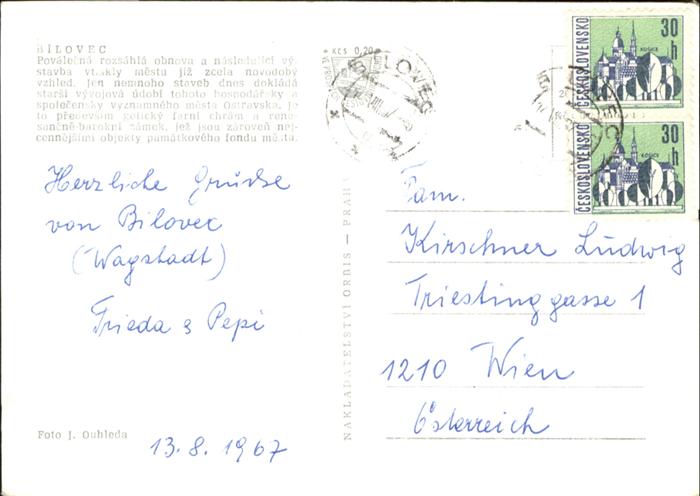 BÍLOVEC
Poválečná rozsáhlá obnova a následující vý-
stavba vtiskly městu již zcela novodobý
vzhled. Jen nemnoho staveb dnes dokládá
starší vývojová údobí tohoto hospodářsky a
společensky významného města Ostravska. Je
to především gotický farní chrám a rene-
sančně-barokní zámek, jež jsou zároveň nej-
cennějšími objekty památkového fondu města.
Herzliche Grüsse
von Bilovec
(Wagstadt)
Frieda & Pepi
Foto J. Ouhleda
13.8.1967
NAKLADATELSTVÍ ORBIS — PRAHA
KČS 0,20
BÍLOVEC
ČESKOSLOVENSKO
30
h
KOŠICE
ČESKOSLOVENSKO
30
h
KOŠICE
Fam.
Kirschner Ludwig
Triestinggasse 1
1210 Wien
Österreich